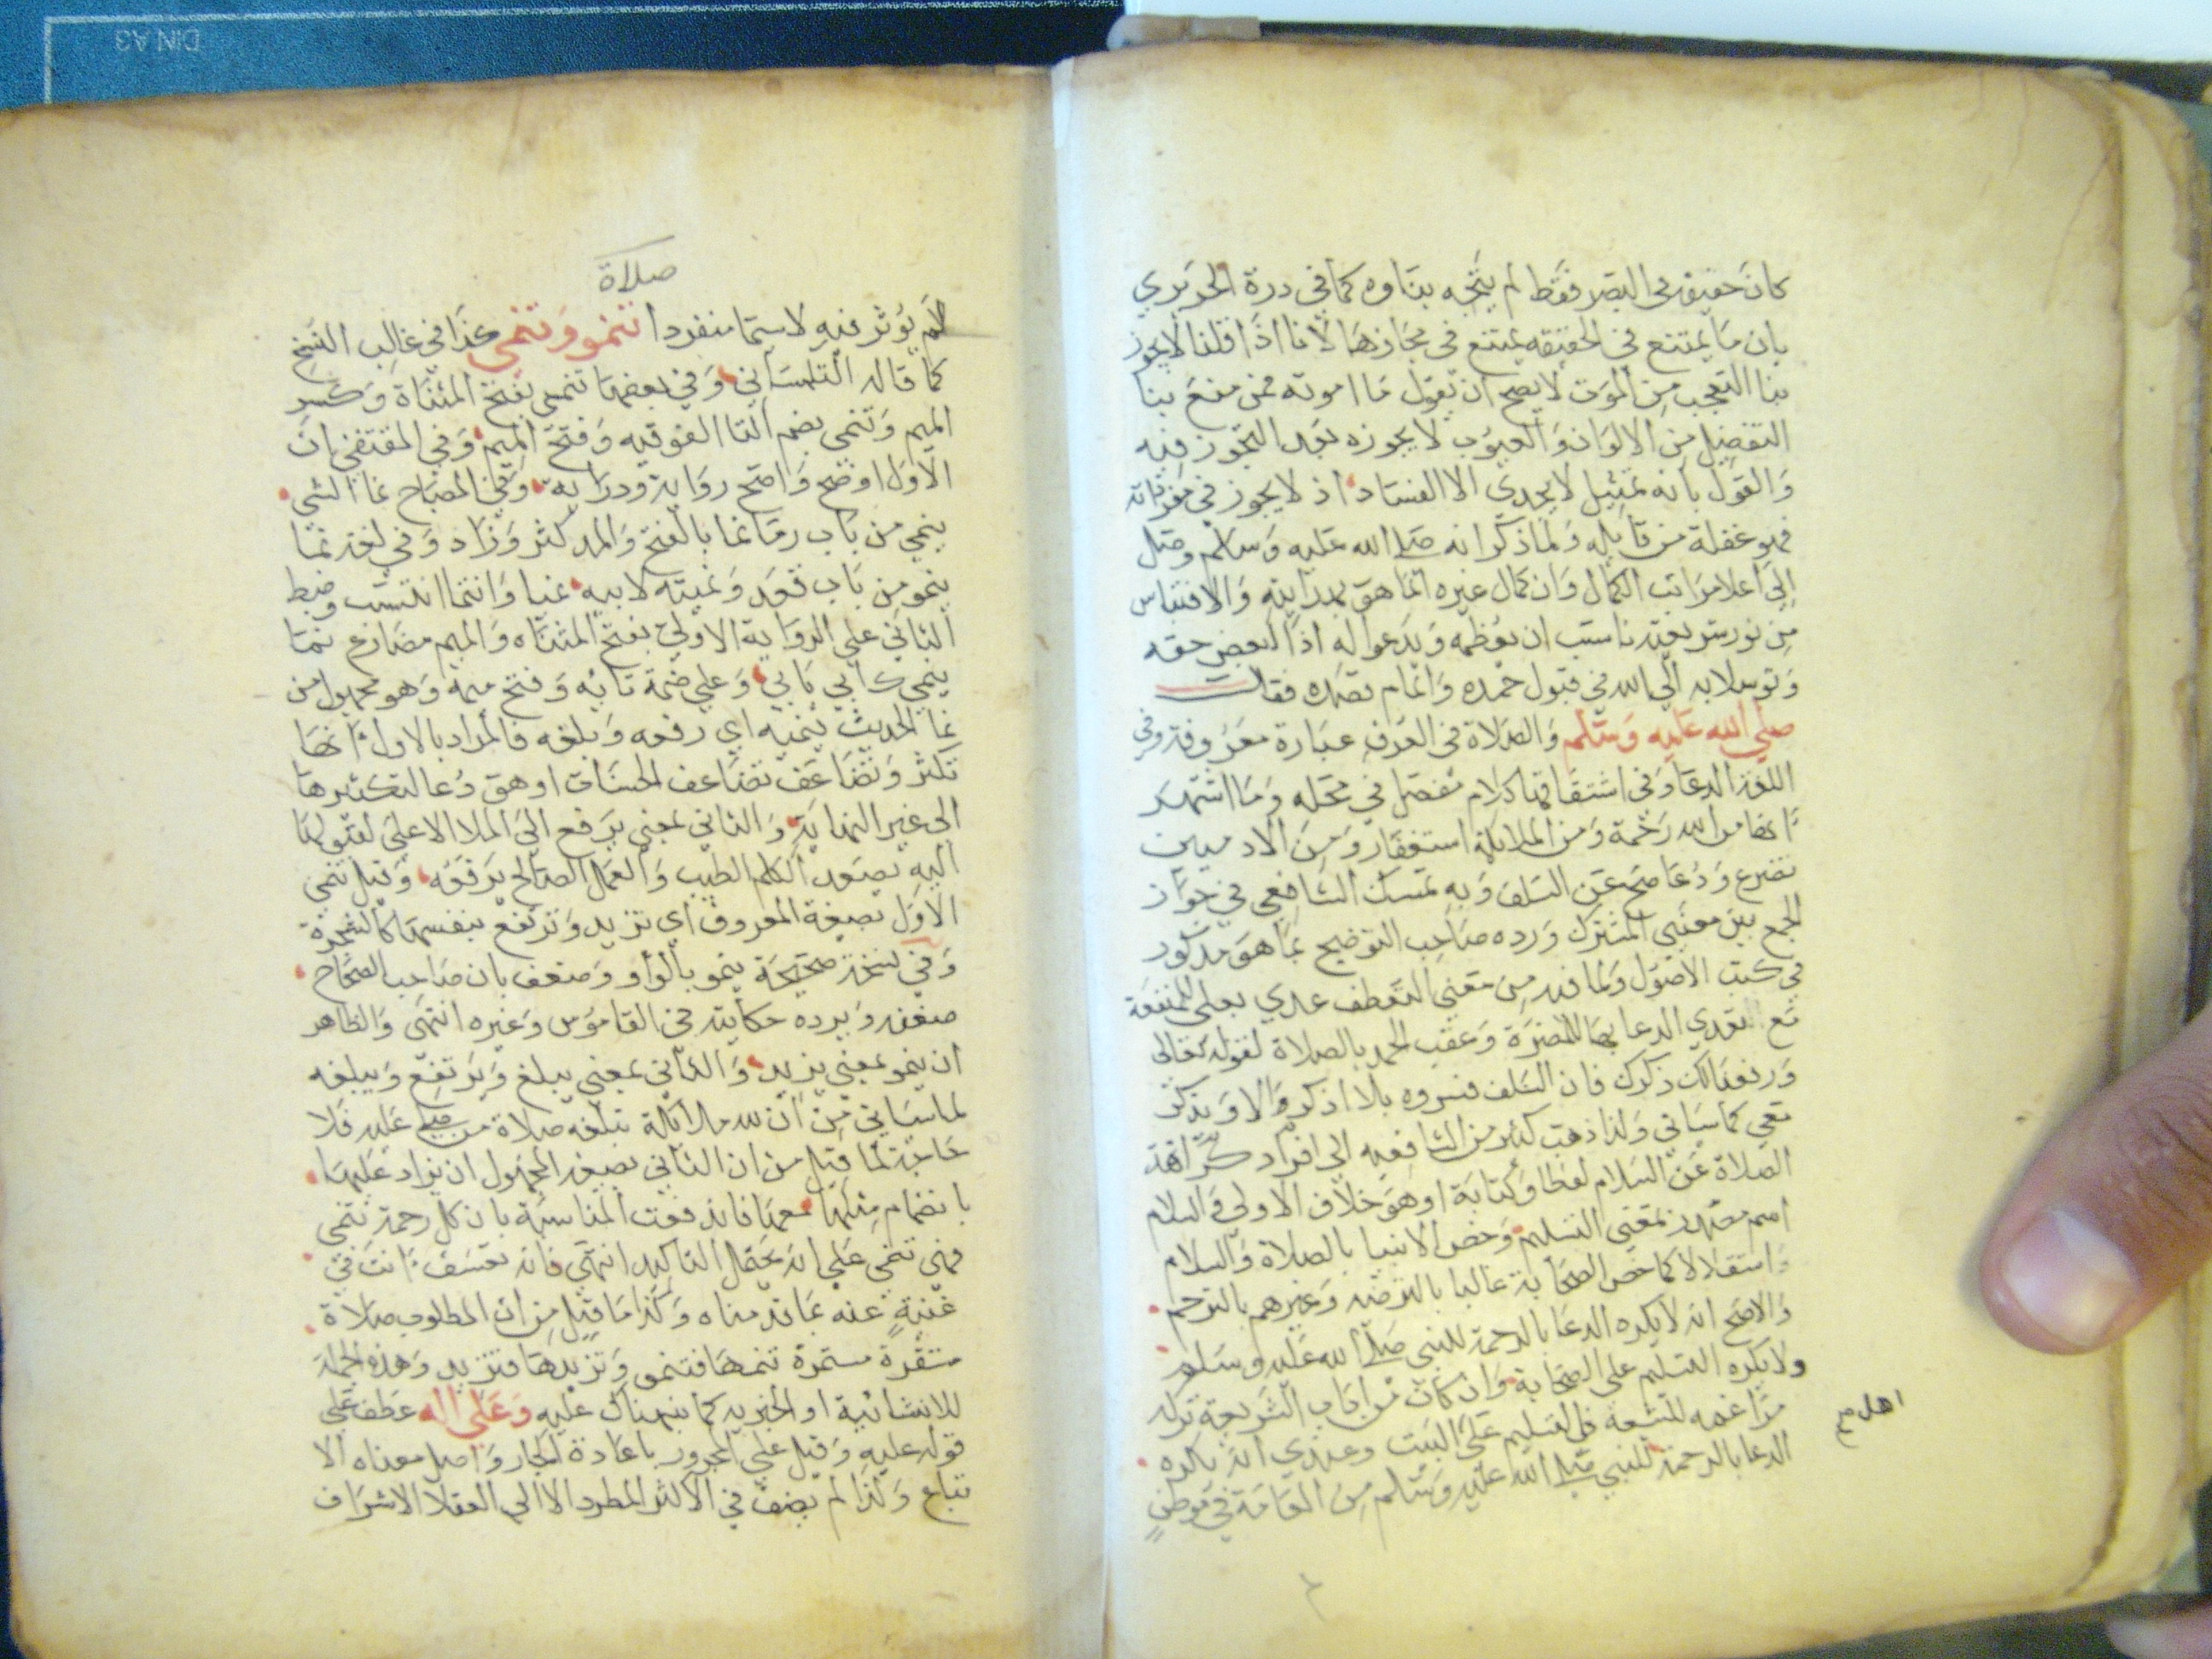 كان حقيقة في البصر فقط لم يتجه بناوه كما في درة الحريري
بان ما يمتنع في الحقيقة يمتنع في مجازها لانا اذا قلنا لا يجوز
بنا التعجب من الموت لا يصح ان تقول ما اموته فمن منع بنا
التفضيل من الالوان والعيوب لا يجوزه بعد التجوز فيه
والقول بانه تمثيل لا يجدي الا الفساد اذ لا يجوز في مفرداته
فهو غفلة من قايله ولما ذكر انه صلى الله عليه وسلم وصل
الى اعلا مراتب الكمال وان كمال غيره انما هو بهدايته والاقتباس
من نور شريعته ناسب ان يعظمه ويدعو له اذا لبعض حقه
وتوسلا به الى الله في قبول حمده واتمام قصده فقال
صلى الله عليه وسلم والصلاة في العرف عبارة معروفة وفي
اللغة الدعا وفي اشتقاقها كلام مفصل في محله وما اشتهر
انها من الله رحمة ومن الملائكة استغفار ومن الادميين
تضرع ودعا صح عن السلف وبه تمسك الشافعي في جواز
الجمع بين معنيي المشترك ورده صاحب التوضيح بما هو مذكور
في كتب الاصول ولما فيه من معنى التعطف عدي بعلى للمنفعة
مع تعدي الدعا بها للمضرة وعقب الحمد بالصلاة لقوله تعالى
ورفعنا لك ذكرك فان السلف فسروه بلا اذكر الا وتذكر
معي كما سياتي ولذا ذهب كثير من الشافعيه الى كراهة افراد
الصلاة عن السلام لفظا وكتابة او هو خلاف الاولى والسلام
اسم مصدر بمعنى التسليم وخص الانبيا بالصلاة والسلام
استقلالا كما خص الصحابة غالبا بالترضية وغيرهم بالترحم
والاصح انه لا يكره الدعا بالرحمة للنبي صلى الله عليه وسلم
ولا يكره التسليم على الصحابة وان كان من اداب الشريعة تركه
مراغمه للشيعة في التسليم على البيت وعندي انه يكره
اهل صح
الدعا بالرحمة للنبي صلى الله عليه وسلم من العامة في موطن
صلاة
لم يؤثر فيه لا سيما منفردا تنمو وتنمى كذا في غالب النسخ
كما قاله التلمساني وفي بعضها تنمى بفتح المثناة وكسر
الميم وتنمى بضم التا الفوقيه وفتح الميم وفي المقتفى ان
الاول اوضح واصح رواية ودراية وفي المصباح نما الشي
ينمي من باب رمى نما بالفتح والمد كثر وزاد وفي لغة نما
ينمو من باب قعد ونميته لابيه نميا وانتما انتسب وضبط
الثاني على الرواية الاولى بفتح المثناه والميم مضارع نما
ينمي كابى يابى وعلى ضمة تائه وفتح ميمه وهو مجهول من
نما الحديث ينميه اي رفعه وبلغه فالمراد بالاول انها
تكثر وتضاعف تضاعف الحسنات او هو دعا لتكثيرها
الى غير النهاية والثاني بمعنى يرفع الى الملا الاعلى لقبولها
اليه يصعد الكلم الطيب والعمل الصالح يرفعه وقيل تنمى
الاول بصيغة المعروف اي تزيد وترتفع بنفسها كالشجرة
وفي نسخة صحيحة ينمو بالواو وضعف بان صاحب الصحاح
ضعفه ويرده حكايته في القاموس وغيره انتهى والظاهر
ان ينمو بمعنى يزيد والثاني بمعنى يبلغ ويرتفع ويبلغه
لما سياتي من ان لله ملائكة تبلغه صلاة من صلى عليه فلا
حاجة لما قيل من ان الثاني بصيغة المجهول ان يزاد عليها
بانضمام مثلها معها فاندفعت المناسبة بان كل رحمة تنمى
فهي تنمى على انه يحتمل التاكيد انتهى فانه تعسف انت في
غنية عنه بما قدمناه وكذا ما قيل من ان المطلوب صلاة
مستقرة مستمرة تنمها فتنمو وتزيدها فتزيد وهذه الجملة
للانشائية او الخبريه كما ينبهناك عليه وعلى اله عطف على
قوله عليه وقيل على المجرور باعادة الجار واصل معناه الا
تباع ولذا لم يضف في الاكثر المطرد الا الى العقلا الاشراف